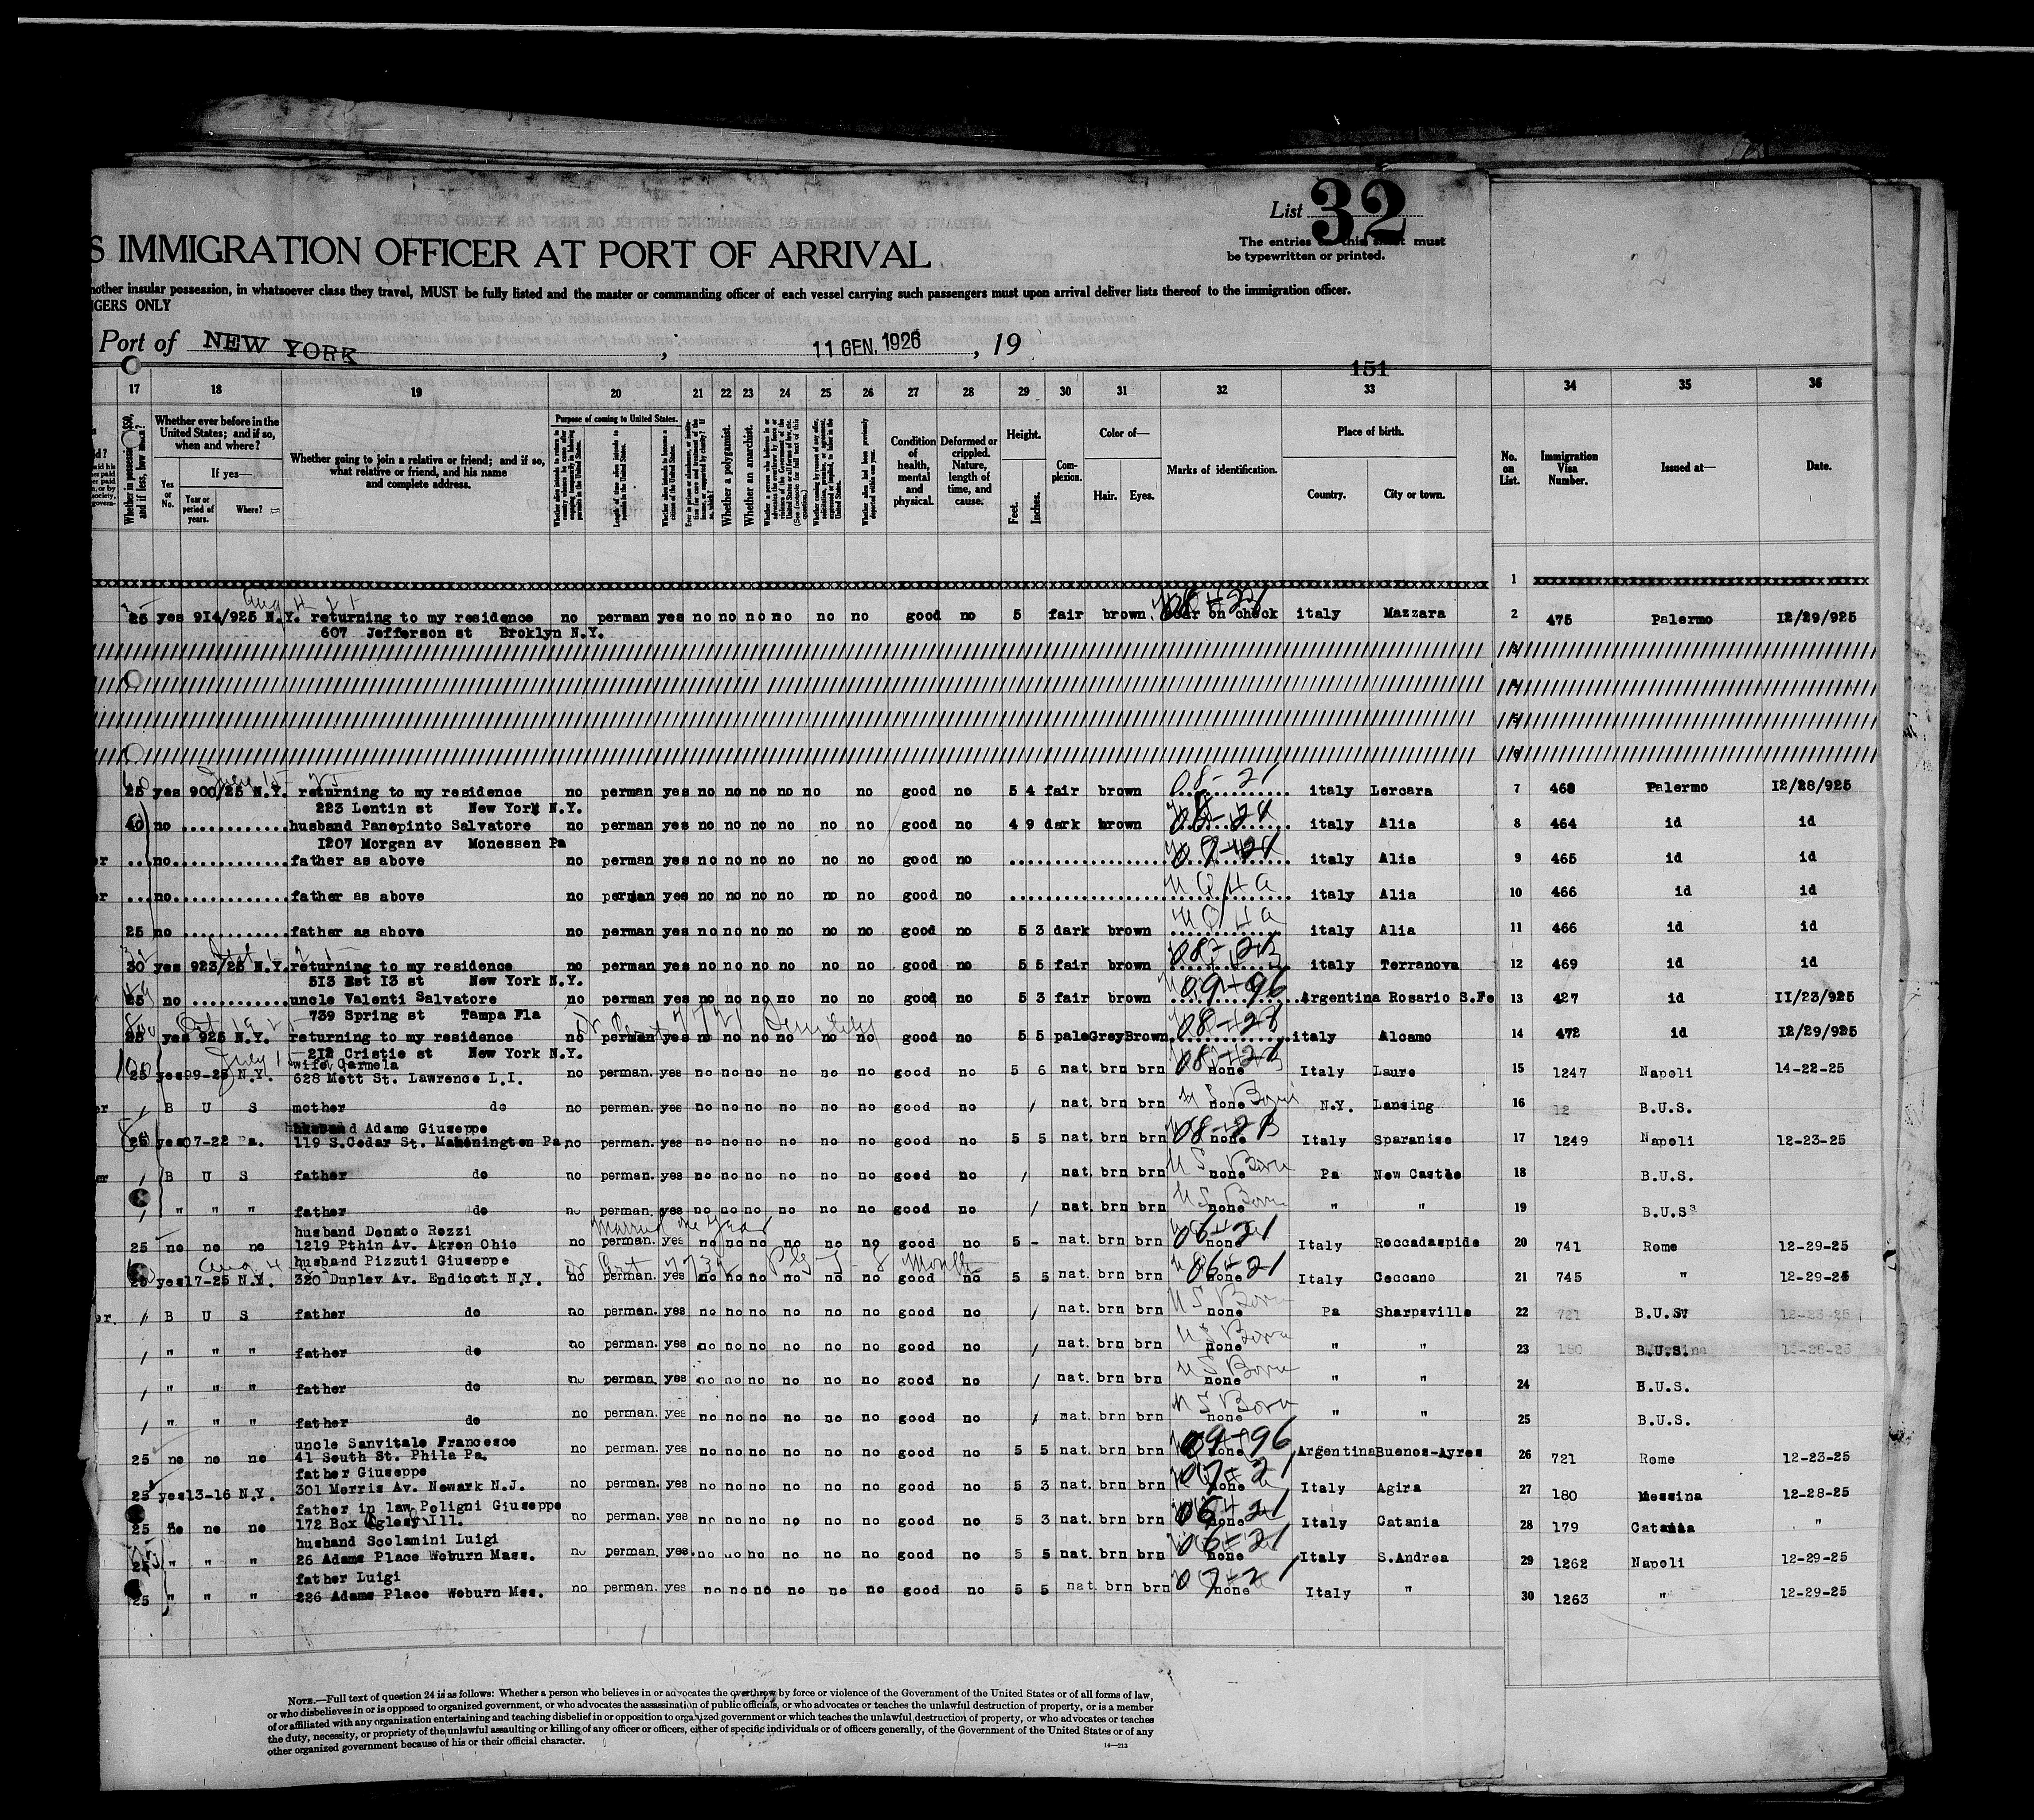 List 32
The entries on this sheet must
be typewritten or printed.
S IMMIGRATION OFFICER AT PORT OF ARRIVAL
nother insular possession, in whatsoever class they travel, MUST be fully listed and the master or commanding officer of each vessel carrying such passengers must upon arrival deliver lists thereof to the immigration officer.
NGERS ONLY
Port of NEW YORK , 11 GEN. 1926 , 19
151
17 18 19 20 21 22 23 24 25 26 27 28 29 30 31 32 33 34 35 36
Whether in possession of $50, and if less, how much?
Whether ever before in the United States; and if so, when and where?
If yes—
Yes or No.
Year or period of years.
Where?
Whether going to join a relative or friend; and if so, what relative or friend, and his name and complete address.
Purpose of coming to United States.
Length of time alien intends to remain in the United States.
Whether alien intends to become a citizen of the United States.
Whether a polygamist.
Whether an anarchist.
Condition of health, mental and physical.
Deformed or crippled. Nature, length of time, and cause.
Height.
Feet. Inches.
Complexion.
Color of—
Hair. Eyes.
Marks of identification.
Place of birth.
Country. City or town.
No. on List.
Immigration Visa Number.
Issued at—
Date.
1 xxxxxxxxxxxxxxxxxxxxxxxxxxxxxxxx
25 yes 914/925 N.Y. returning to my residence no perman yes no no no no no no good no 5 fair brown scar on check italy Mazzara 2 475 Palermo 12/29/925
607 Jefferson st Broklyn N.Y.
25 yes 900/25 N.Y. returning to my residence no perman yes no no no no no no good no 5 4 fair brown 08-21 italy Lercara 7 468 Palermo 12/28/925
223 Lentin st New York N.Y.
40 no husband Panepinto Salvatore no perman yes no no no no no no good no 4 9 dark brown italy Alia 8 464 id id
1207 Morgan av Monessen Pa
no father as above no perman yes no no no no no no good no italy Alia 9 465 id id
no father as above no perman yes no no no no no no good no italy Alia 10 466 id id
25 no father as above no perman yes no no no no no no good no 5 3 dark brown italy Alia 11 466 id id
30 yes 923/25 N.Y. returning to my residence no perman yes no no no no no no good no 5 5 fair brown italy Terranova 12 469 id id
513 Est 13 st New York N.Y.
25 no uncle Valenti Salvatore no perman yes no no no no no no good no 5 3 fair brown 09-96 Argentina Rosario S.Fe 13 427 id 11/23/925
739 Spring st Tampa Fla
25 yes 925 N.Y. returning to my residence no perman yes no no no no no no good no 5 5 pale Grey Brown italy Alcamo 14 472 id 12/29/925
212 Cristie st New York N.Y.
wife Carmela
25 yes 09-25 N.Y. 628 Mott St. Lawrence L.I. no perman. yes no no no no no no good no 5 6 nat. brn brn none Italy Laure 15 1247 Napoli 14-22-25
/ B U S mother do no perman. yes no no no no no no good no / nat. brn brn none U S Born N.Y. Lansing 16 12 B.U.S.
husband Adamo Giuseppe
25 yes 07-22 Pa. 119 S.Cedar St. Mahenington Pa. no perman. yes no no no no no no good no 5 5 nat. brn brn none Italy Sparanise 17 1249 Napoli 12-23-25
/ B U S father do no perman. yes no no no no no no good no / nat. brn brn none U S Born Pa New Castle 18 B.U.S.
/ " " " father do no perman. yes no no no no no no good no / nat. brn brn none U S Born " " 19 B.U.S
married one year
husband Donato Rozzi
25 no no no 1219 Pthin Av. Akron Ohio no perman. yes no no no no no no good no 5 - nat. brn brn none 06-21 Italy Roccadaspide 20 741 Rome 12-29-25
husband Pizzuti Giuseppe
25 yes 17-25 N.Y. 320 Duplev Av. Endicott N.Y. no perman. yes no no no no no no good no 5 5 nat. brn brn none 06-21 Italy Ceccano 21 745 " 12-29-25
/ B U S father do no perman. yes no no no no no no good no / nat. brn brn none U S Born Pa Sharpsville 22 721 B.U.S. 12-23-25
/ " " " father do no perman. yes no no no no no no good no / nat. brn brn none U S Born " " 23 180 B.U.S.
/ " " " father do no perman. yes no no no no no no good no / nat. brn brn none U S Born " " 24 B.U.S.
/ " " " father do no perman. yes no no no no no no good no / nat. brn brn none U S Born " " 25 B.U.S.
uncle Sanvitale Francesco
25 no no no 41 South St. Phila Pa. no perman. yes no no no no no no good no 5 5 nat. brn brn none 09-96 Argentina Buenos-Ayres 26 721 Rome 12-23-25
father Giuseppe
25 yes 13-16 N.Y. 301 Morris Av. Newark N.J. no perman. yes no no no no no no good no 5 3 nat. brn brn none 07-21 Italy Agira 27 180 Messina 12-28-25
father in law Poligni Giuseppe
25 no no no 172 Box Oglesy Ill. no perman. yes no no no no no no good no 5 3 nat. brn brn none 06-21 Italy Catania 28 179 Catania "
husband Scolamini Luigi
25 " " " 26 Adams Place Woburn Mass. no perman. yes. no no no no no no good no 5 5 nat. brn brn none 06-21 Italy S.Andrea 29 1262 Napoli 12-29-25
father Luigi
25 " " " 226 Adams Place Woburn Mss. no perman. yes no no no no no no good no 5 5 nat. brn brn none 07-21 Italy " 30 1263 " 12-29-25
NOTE.—Full text of question 24 is as follows: Whether a person who believes in or advocates the overthrow by force or violence of the Government of the United States or of all forms of law,
or who disbelieves in or is opposed to organized government, or who advocates the assassination of public officials, or who advocates or teaches the unlawful destruction of property, or is a member
of or affiliated with any organization entertaining and teaching disbelief in or opposition to organized government or which teaches the unlawful destruction of property, or who advocates or teaches
the duty, necessity, or propriety of the unlawful assaulting or killing of any officer or officers, either of specific individuals or of officers generally, of the Government of the United States or of any
other organized government because of his or their official character.
14—213